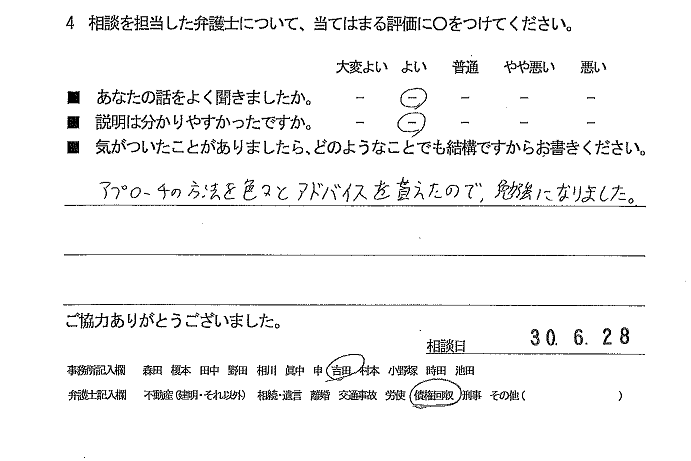 4 相談を担当した弁護士について、当てはまる評価に〇をつけてください。
大変よい よい 普通 やや悪い 悪い
■ あなたの話をよく聞きましたか。 － － － － －
■ 説明は分かりやすかったですか。 － － － － －
■ 気がついたことがありましたら、どのようなことでも結構ですからお書きください。
アプローチの方法を色々とアドバイスを貰えたので、勉強になりました。
ご協力ありがとうございました。
相談日 30.6.28
事務所記入欄 森田 榎本 田中 野田 相川 眞中 申 吉田 村本 小野塚 時田 池田
弁護士記入欄 不動産(建明・それ以外) 相続・遺言 離婚 交通事故 労使 債権回収 刑事 その他( )